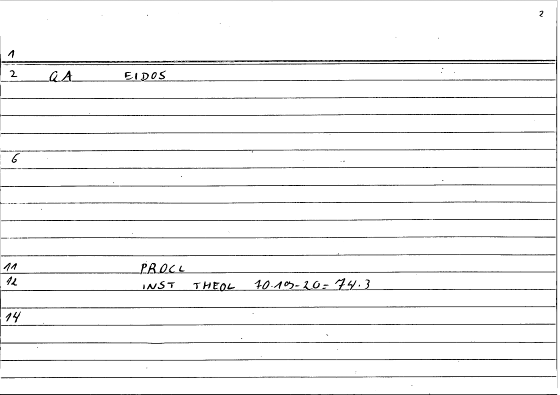 2
1
2 QA EIDOS
6
11 PROCL
12 INST THEOL 70.109-20= 74.3
14